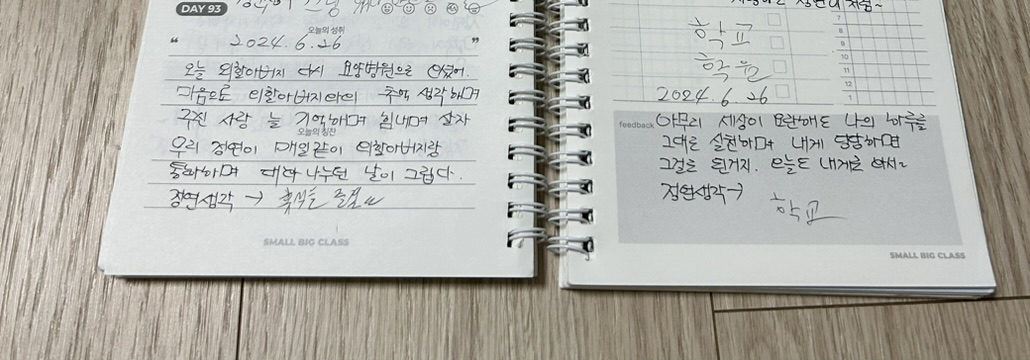 DAY 93
오늘의 성취
“ 2024. 6. 26 ”
오늘 외할아버지 다시 요양병원으로 
마음으로 외할아버지와의 추억 생각하며
사랑 늘 기억하며 힘내며 살자
오늘의 칭찬
우리 정연이 매일같이 외할아버지랑
통화하며 대화 나누던 날이 그립다.
정연생각 →
SMALL BIG CLASS
학교
학원
7
8
9
10
11
12
1
2024. 6. 26
feedback 아무리 세상이 요란해도 나의 하루를
그대로 실천하며 내게 당당하면
그걸로 된거지. 오늘도 내게로
정연생각→
학교
SMALL BIG CLASS